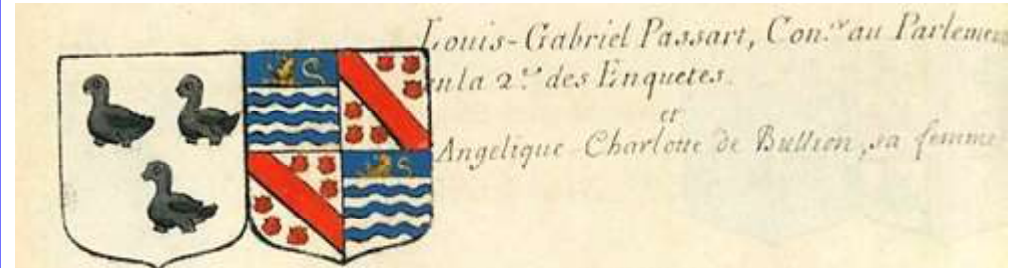 Louis-Gabriel Passart, Con.er au Parlement
en la 2.e des Enquetes.
et
Angelique Charlotte de Bullion, sa femme